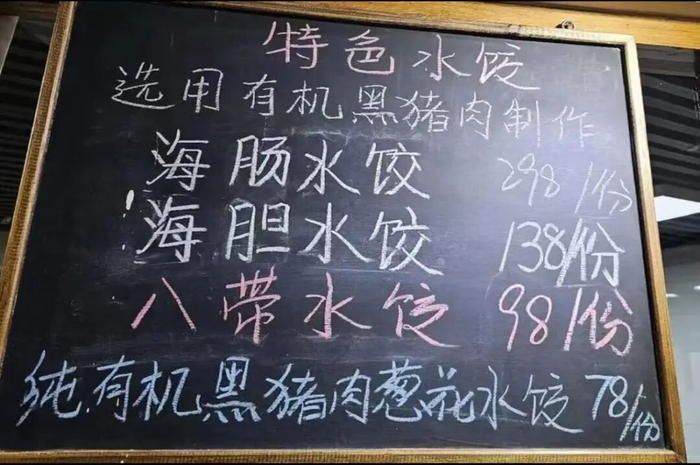 特色水饺
选用有机黑猪肉制作
海肠水饺 298/份
海胆水饺 138/份
八带水饺 98/份
纯有机黑猪肉葱花水饺 78/份